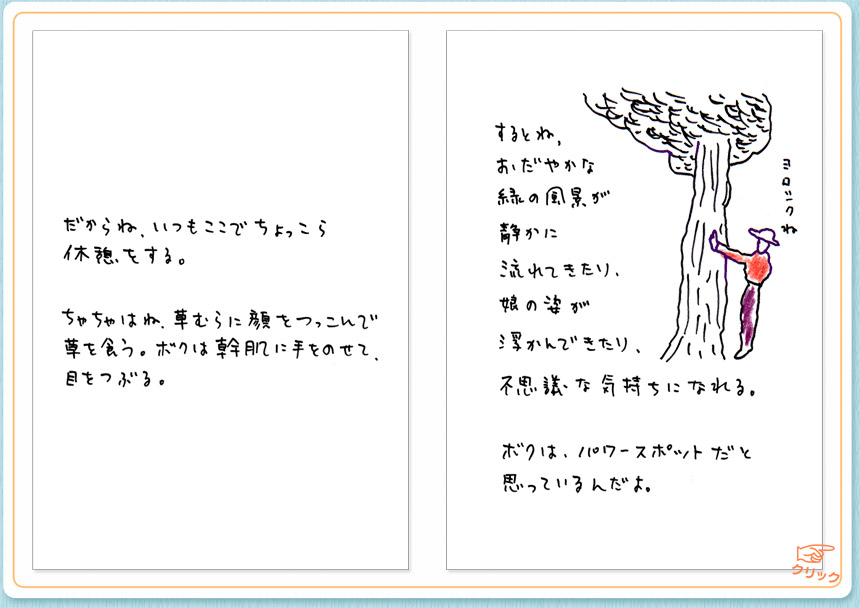 だからね、いつもここでちょっこら
休憩をする。
ちゃちゃはね、草むらに顔をつっこんで
草を食う。ボクは幹肌に手をのせて、
目をつぶる。
するとね、
おだやかな
緑の風景が
静かに
流れてきたり、
娘の姿が
浮かんできたり、
不思議な気持ちになれる。
ボクは、パワースポットだと
思っているんだよ。
ヨロシクね
クリック